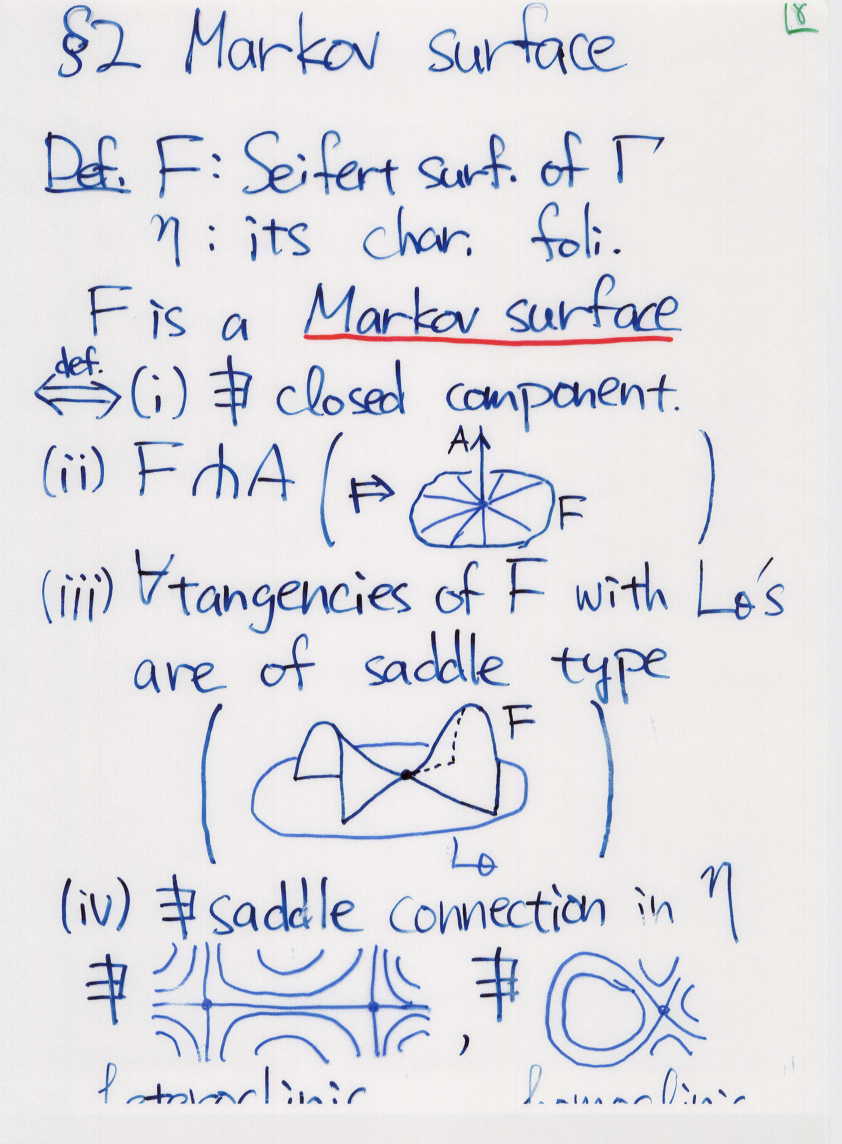 8
§2 Markov surface
Def. F: Seifert surf. of Γ
η: its char. foli.
F is a Markov surface
⟺ def. (i) ∄ closed component.
(ii) F ⋔ A ( A F )
(iii) ∀tangencies of F with Lθ's
are of saddle type
F
Lθ
(iv) ∄ saddle connection in η
∄ , ∄
heteroclinic homoclinic